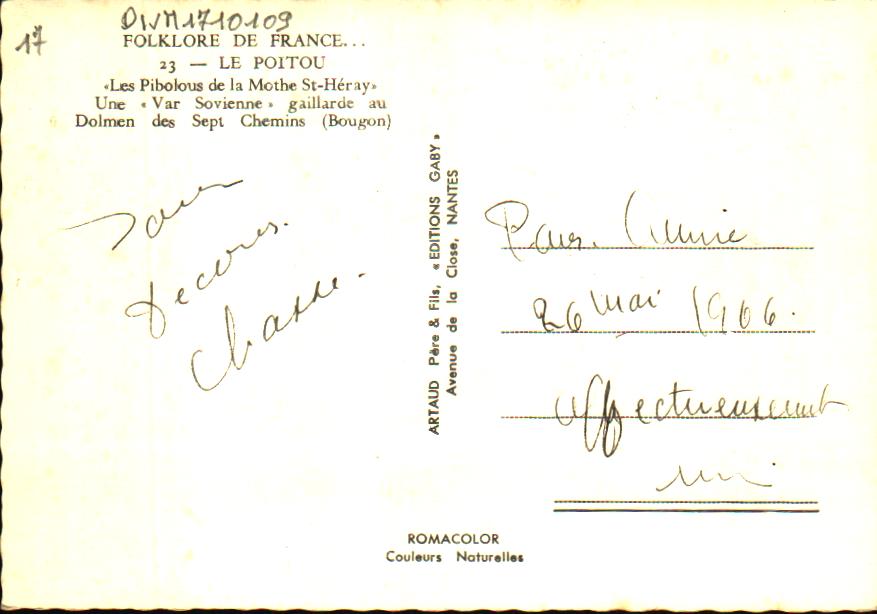 DIVM1710109
17
FOLKLORE DE FRANCE...
23 — LE POITOU
«Les Pibolous de la Mothe St-Héray»
Une « Var Sovienne » gaillarde au
Dolmen des Sept Chemins (Bougon)
Pour
decores.
Chasse.
ARTAUD Père & Fils, « EDITIONS GABY »
Avenue de la Close, NANTES
Pour
26 Mai 1966.
affectueusement
ROMACOLOR
Couleurs Naturelles